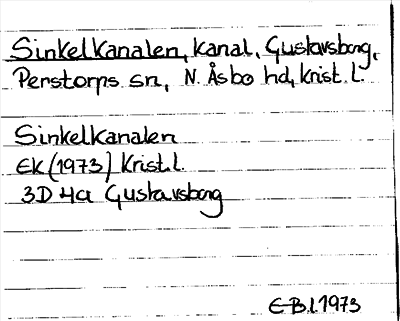 Sinkelkanalen, kanal, Gustavsborg,
Perstorps sn, N. Åsbo hd, Krist. l.
Sinkelkanalen
EK (1973) Krist. l.
3D 4a Gustavsborg
E-B. l. 1973